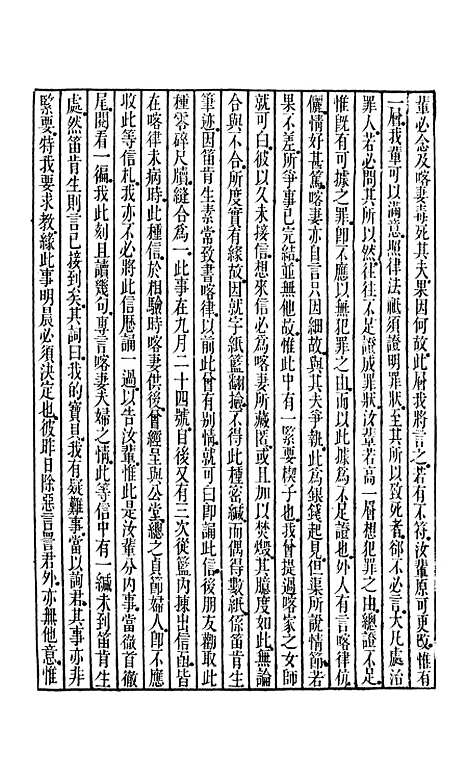 輩必念及喀妻毒死其夫果因何故此層我將言之若有不符汝輩原可更改惟有
一層我輩可以滿意照律法祇須證明罪狀至其所以致死者郤不必言大凡處治
罪人若必問其所以然往往不足證成罪狀汝輩若高一層想犯罪之由總證不足
惟旣有可據之罪卽不應以無犯罪之由爲不足證也外人有言喀律伉
儷情好甚篤喀妻亦自言只因細故與其夫爭執此爲銀錢起見但渠所說情節若
果不差所爭事已完結並無他故惟此中有一緊要楔子也我曾提過喀家之女師
就可曰彼以久未接信想來信必爲喀妻所藏匿或以焚燬其臆度如此無論
合與不合所度實有緣故因就字紙籃翻撿不得此種密緘而偶得數紙係笛肯生
筆迹因笛肯生素常致書喀律以前此曾有別情就可曰卽誦此信後朋友勸取此
種零碎尺牘縫合爲一此事在九月二十四號自後又有三次從籃內揀出信函皆
在喀律未病時此種信於相驗時喀妻供後曾經呈與公堂總之貞節婦人卽不應
收此等信札我亦不必將此信歷誦一過以告汝輩惟此是汝輩分內事當徹首徹
尾閱看一徧我此刻且讀幾句專言喀妻夫婦之情此等信中有一緘未到笛肯生
處然笛肯生則言已接到矣其詞曰我的寶貝我有疑難事當以詞君其事亦非
緊要特我要求教緣此事明晨必須決定也彼昨日除惡言詈君外亦無他意惟